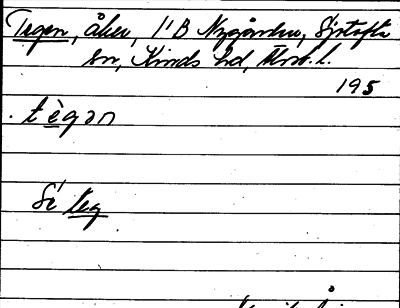 Tegen, åker, 1/1 B Nygården, Sjötofta
sn, Kinds hd, Älvsb. l.
195
. tègən
Se teg